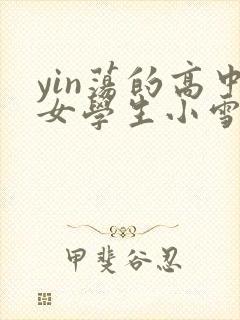 yin蕩的高中
女學生小雪
甲斐谷忍